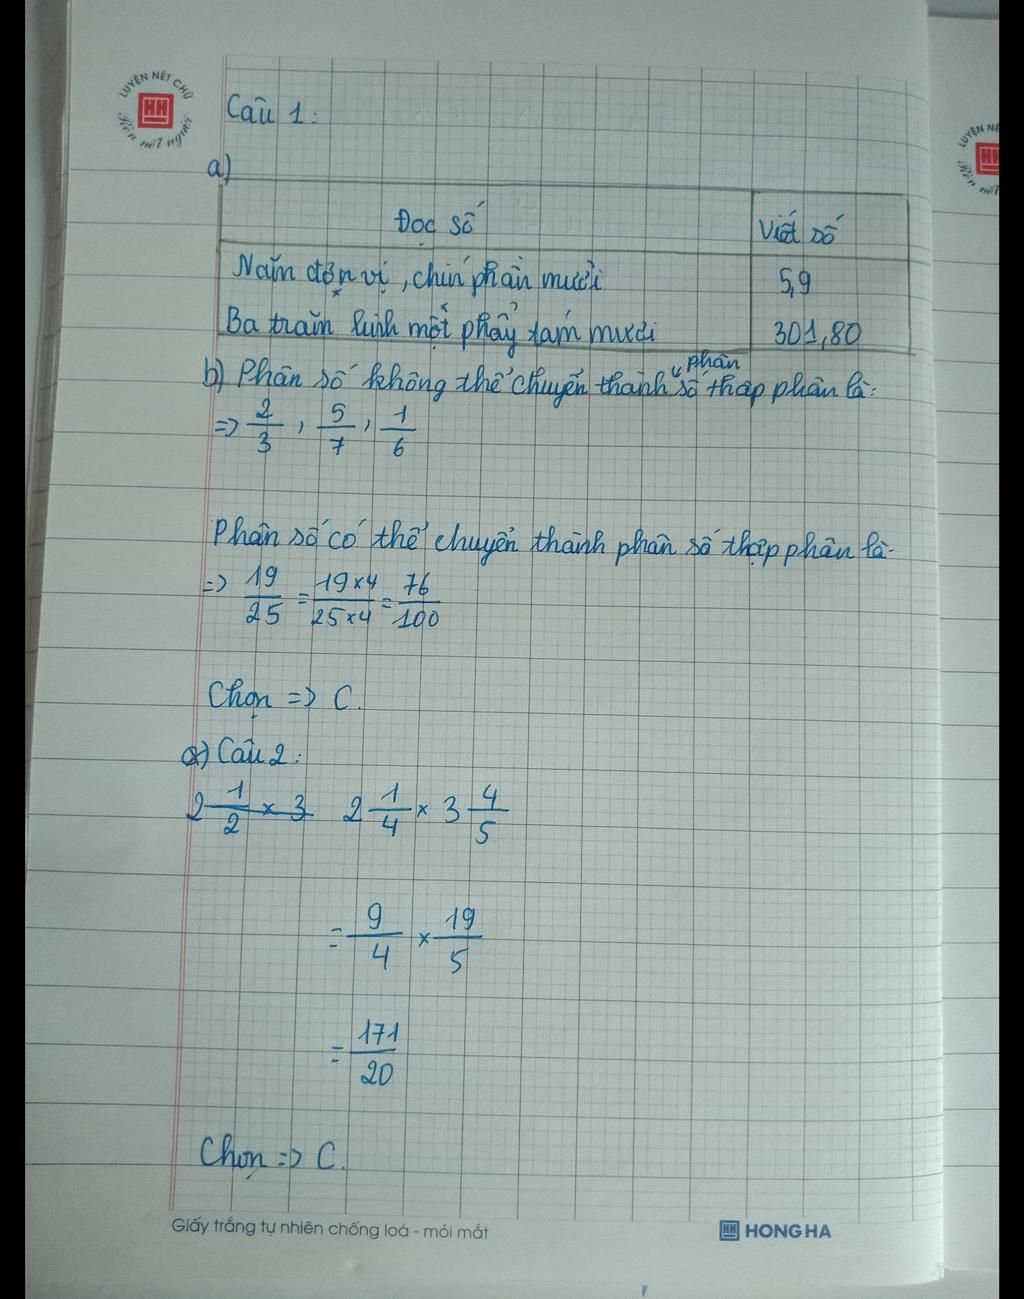 LUYỆN NÉT CHỮ
Rèn nết người
LUYỆN NÉ
Rèn nết
Câu 1:
a)
Đọc số
Viết số
Năm đơn vị, chín phần mười
5,9
Ba trăm linh một phẩy tám mươi
301,80
phân
b) Phân số không thể chuyển thành số thập phân là:
=> 2/3, 5/7, 1/6
Phân số có thể chuyển thành phân số thập phân là:
=> 19/25 = 19×4/25×4 = 76/100
Chọn => C.
a) Câu 2:
2 1/2 × 3 2 1/4 × 3 4/5
= 9/4 × 19/5
= 171/20
Chọn => C.
Giấy trắng tự nhiên chống loá - mỏi mắt
HH HONG HA